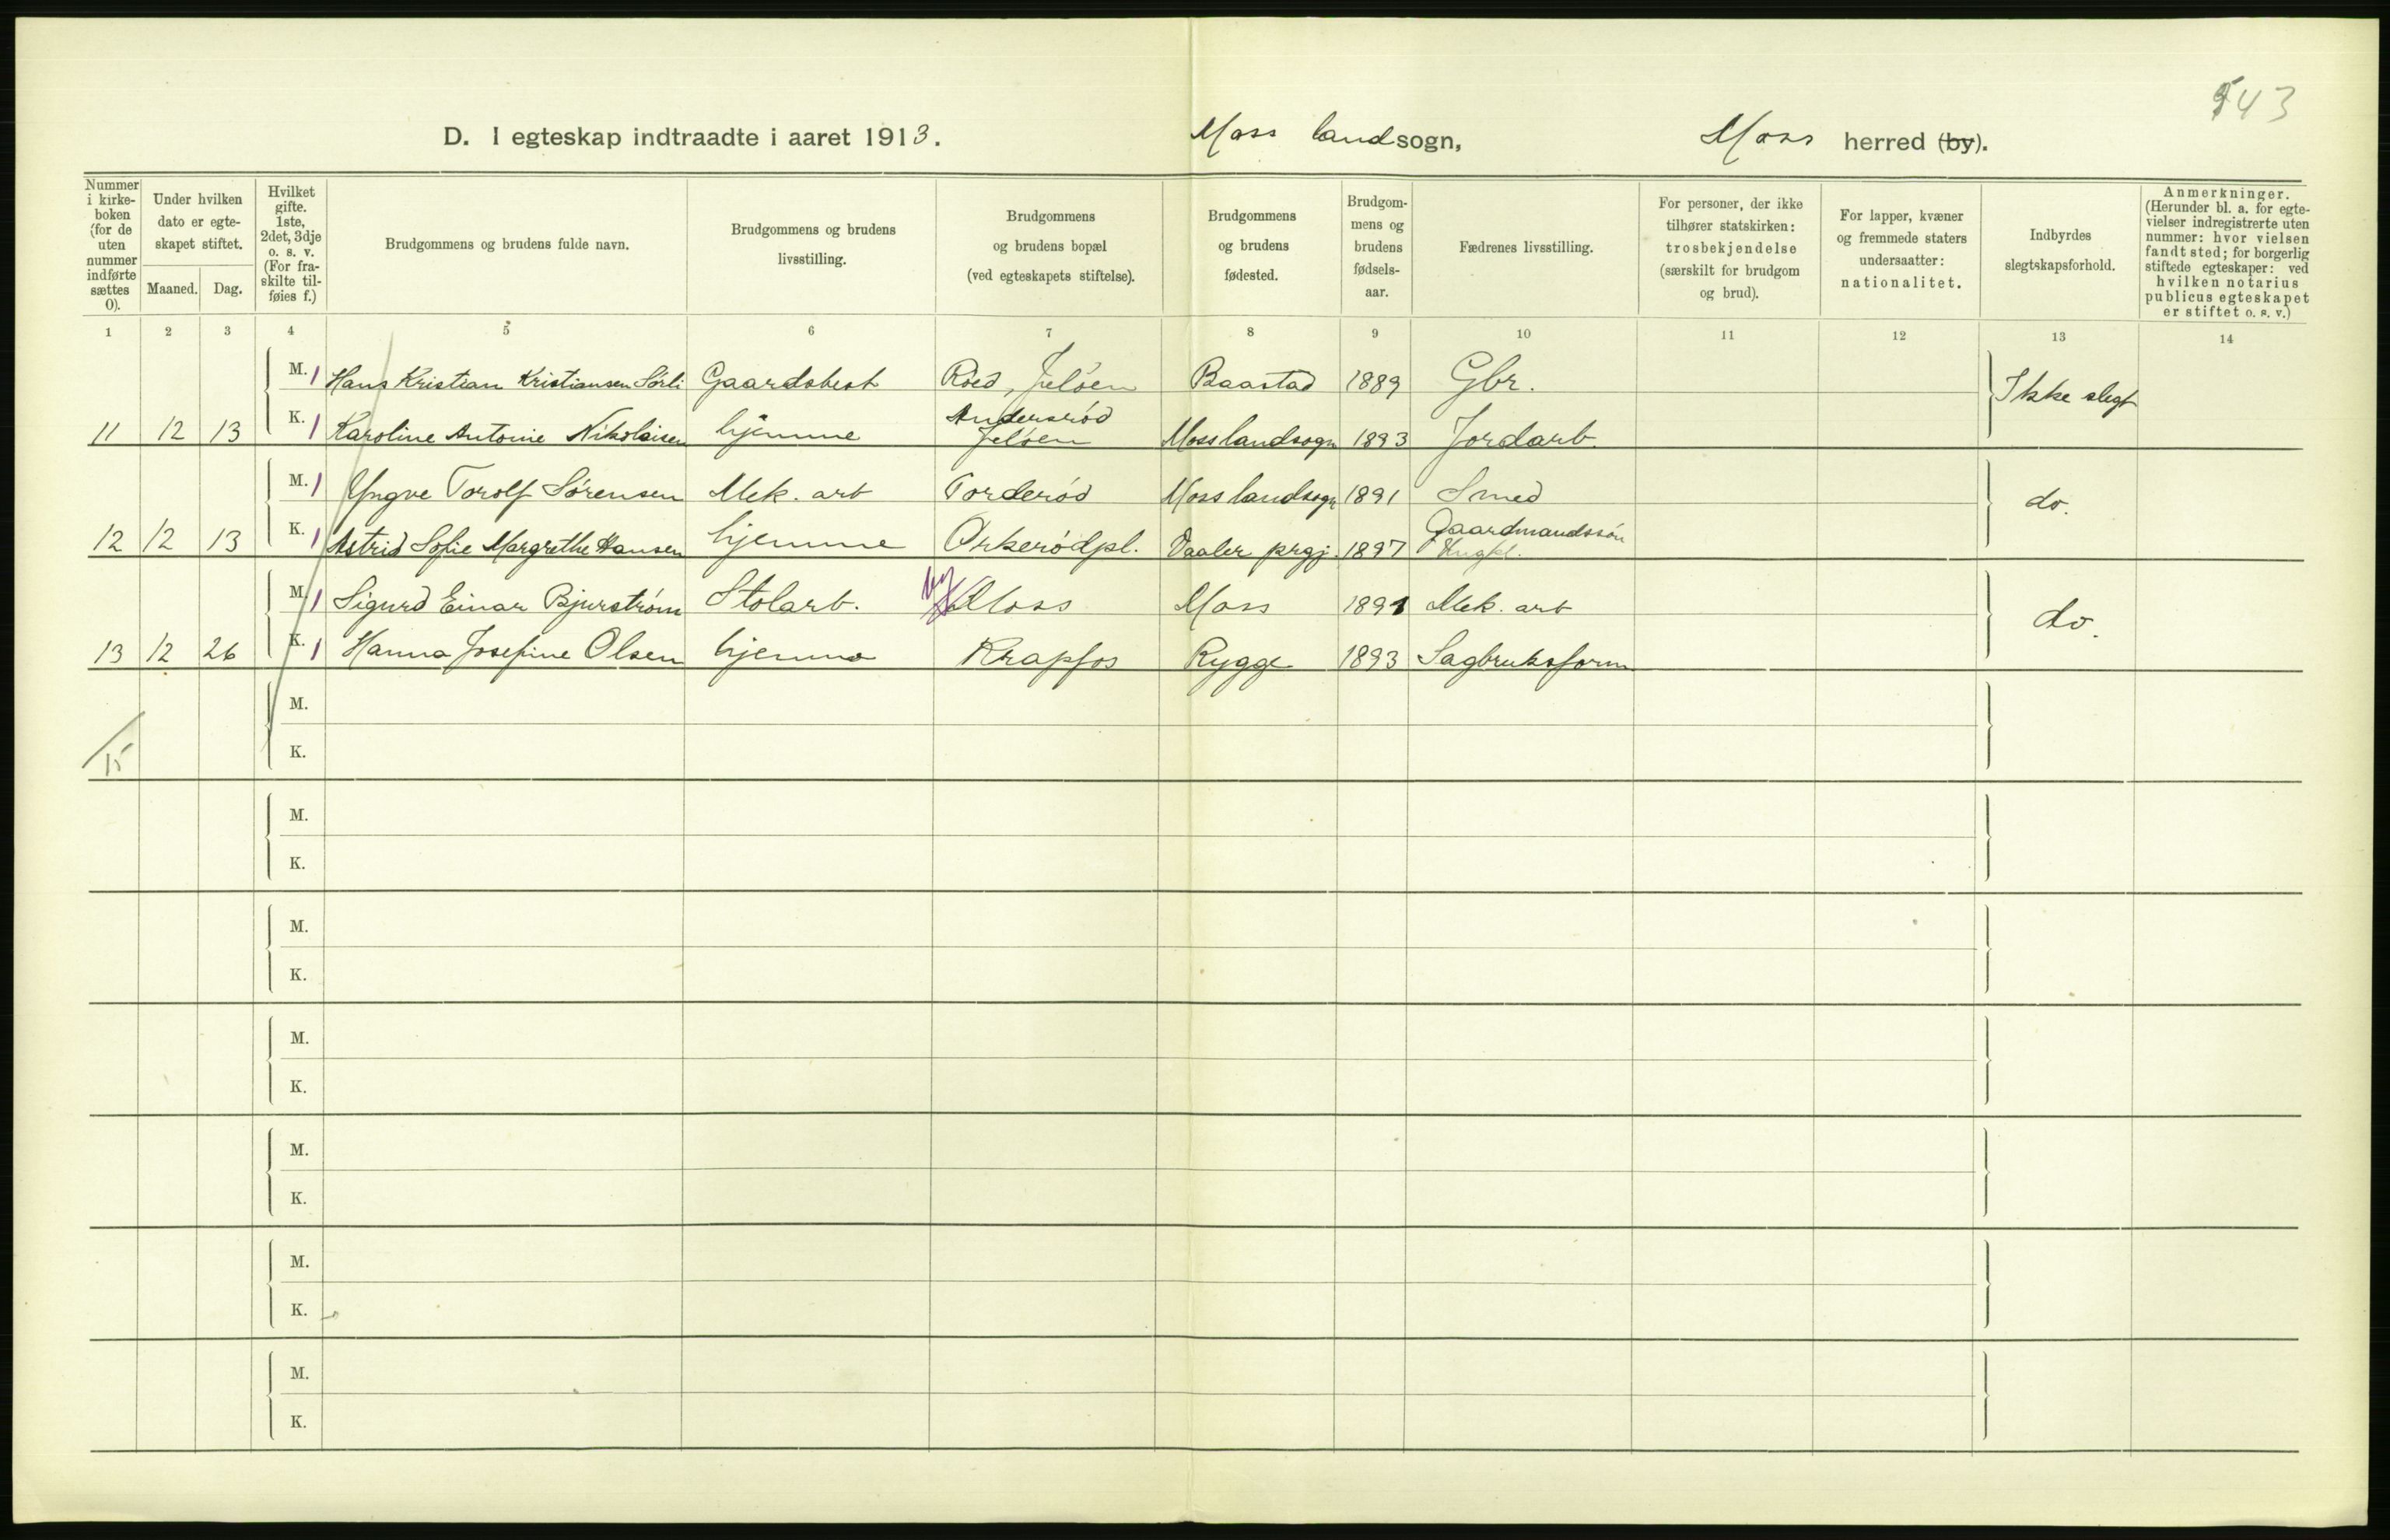 543
D. I egteskap indtraadte i aaret 1913. Moss landsogn, Moss herred (by).
Nummer i kirke-boken (for de uten nummer indførte sættes 0).
Under hvilken dato er egte-skapet stiftet.
Maaned. Dag.
Hvilket gifte. 1ste, 2det, 3dje o. s. v. (For fra-skilte til-føies f.)
Brudgommens og brudens fulde navn.
Brudgommens og brudens livsstilling.
Brudgommens og brudens bopæl (ved egteskapets stiftelse).
Brudgommens og brudens fødested.
Brudgom-mens og brudens fødsels-aar.
Fædrenes livsstilling.
For personer, der ikke tilhører statskirken: trosbekjendelse (særskilt for brudgom og brud).
For lapper, kvæner og fremmede staters undersaatter: nationalitet.
Indbyrdes slegtskapsforhold.
Anmerkninger. (Herunder bl. a. for egte-vielser indregistrerte uten nummer: hvor vielsen fandt sted; for borgerlig stiftede egteskaper: ved hvilken notarius publicus egteskapet er stiftet o. s. v.)
1 2 3 4 5 6 7 8 9 10 11 12 13 14
M. 1 Hans Kristian Kristiansen Sørli Gaardsbest Röed, Jelöen Baastad 1889 Gbr. Ikke slegt
11 12 13 K. 1 Karoline Antonie Nikolaisen hjemme Andersröd Jelöen Moss landsogn 1893 Jordarb.
M. 1 Yngve Torolf Sörensen Mek. arb Torderöd Moss landsogn 1891 Smed do.
12 12 13 K. 1 Astrid Sofie Margrethe Hansen hjemme Orkerödpl. Vaaler prgj. 1897 Gaardmandssön Ungkl.
M. 1 Sigurd Einar Bjurström Stolarb. Moss Moss 1891 Mek. arb do.
13 12 26 K. 1 Hanna Josefine Olsen hjemme Krapfos Rygge 1893 Sagbruksform
M.
15 K.
M.
K.
M.
K.
M.
K.
M.
K.
M.
K.
M.
K.